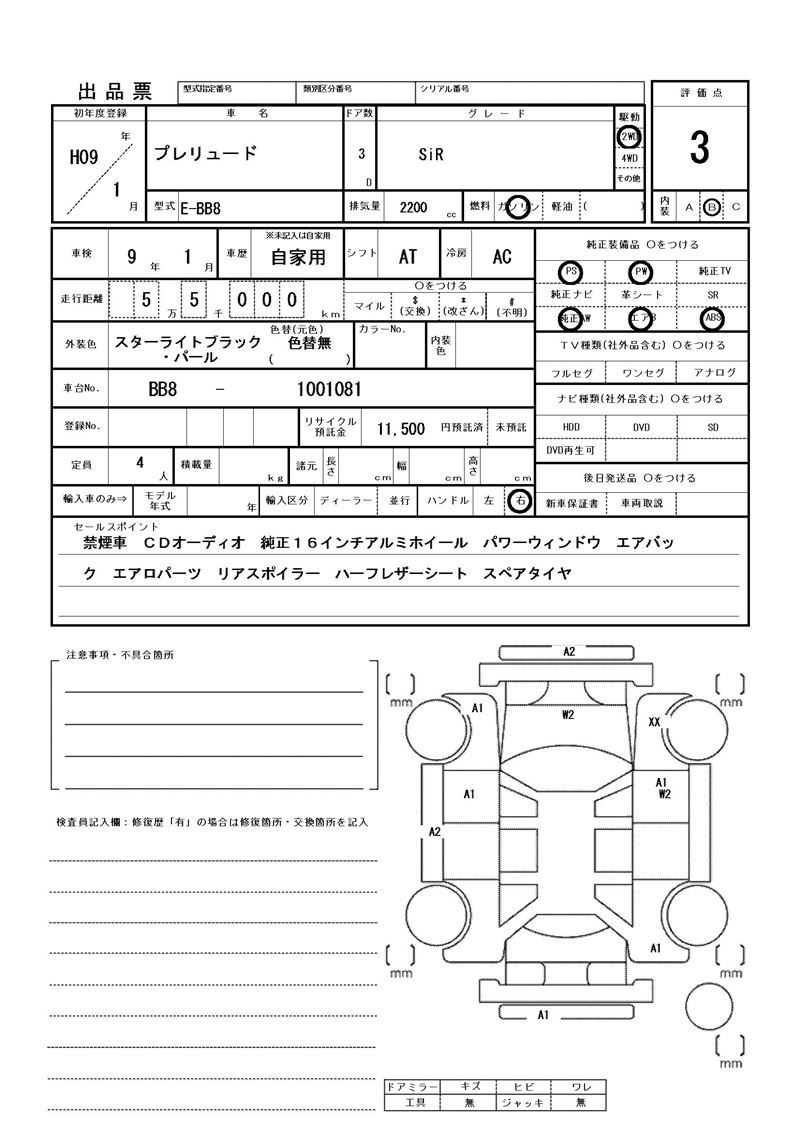 出品票
型式指定番号 類別区分番号 シリアル番号
評価点
3
内装 A B C
初年度登録 車名 ドア数 グレード 駆動
H09 年 1 月
プレリュード
3 D
SiR
2WD
4WD
その他
型式 E-BB8 排気量 2200 cc 燃料 ガソリン 軽油 ( )
車検 9 年 1 月 車歴 ※未記入は自家用 自家用 シフト AT 冷房 AC
走行距離 5 万 5 千 0 0 0 km
〇をつける
マイル $(交換) *(改ざん) #(不明)
外装色 スターライトブラック・パール 色替(元色) 色替無 ( ) カラーNo. 内装色
車台No. BB8 - 1001081
登録No. リサイクル預託金 11,500 円預託済 未預託
定員 4 人 積載量 kg 諸元 長さ cm 幅 cm 高さ cm
輸入車のみ⇒ モデル年式 年 輸入区分 ディーラー 並行 ハンドル 左 右
純正装備品 〇をつける
PS PW 純正TV
純正ナビ 革シート SR
純正AW エアB ABS
TV種類(社外品含む) 〇をつける
フルセグ ワンセグ アナログ
ナビ種類(社外品含む) 〇をつける
HDD DVD SD
DVD再生可
後日発送品 〇をつける
新車保証書 車両取説
セールスポイント
禁煙車 CDオーディオ 純正16インチアルミホイール パワーウィンドウ エアバッ
ク エアロパーツ リアスポイラー ハーフレザーシート スペアタイヤ
注意事項・不具合箇所
検査員記入欄:修復歴「有」の場合は修復箇所・交換箇所を記入
A2
mm mm
A1 W2 XX
A1 A1
W2
A2
A1
mm mm
A1
mm
ドアミラー キズ ヒビ ワレ
工具 無 ジャッキ 無